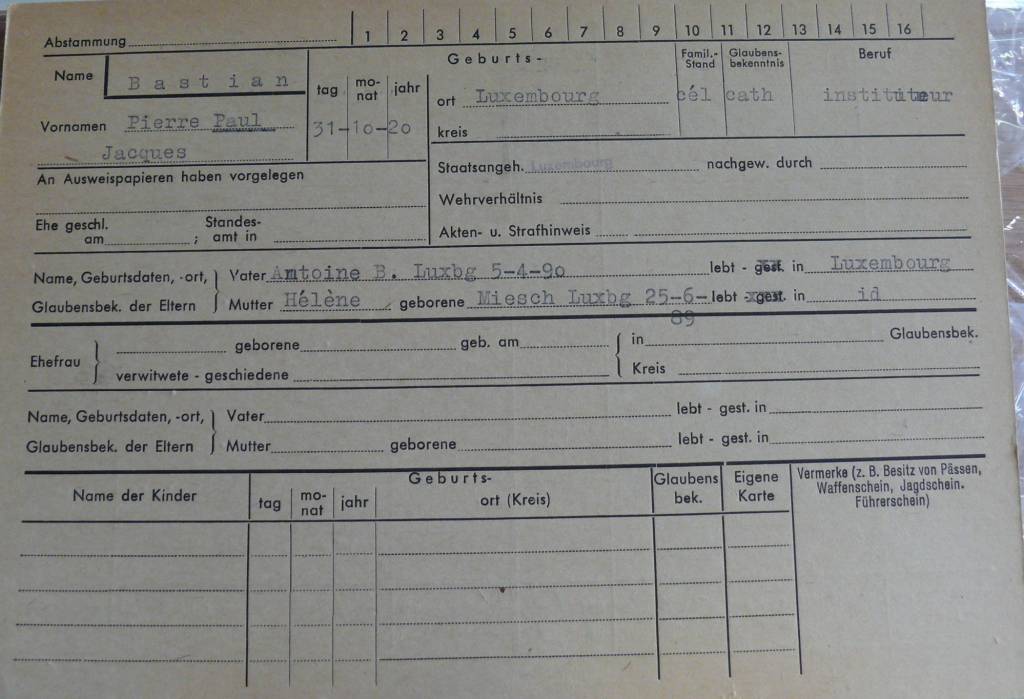 Abstammung 1 2 3 4 5 6 7 8 9 10 11 12 13 14 15 16
Name Bastian
Geburts-
tag monat jahr
31-10-20
ort Luxembourg
kreis
Famil.-Stand cél
Glaubensbekenntnis cath
Beruf instituteur
Vornamen Pierre Paul
Jacques
Staatsangeh. Luxembourg nachgew. durch
An Ausweispapieren haben vorgelegen
Wehrverhältnis
Ehe geschl. am ; Standesamt in
Akten- u. Strafhinweis
Name, Geburtsdaten, -ort, Vater Antoine B. Luxbg 5-4-90 lebt - gest. in Luxembourg
Glaubensbek. der Eltern Mutter Hélène geborene Miesch Luxbg 25-6- lebt - gest. in id
89
Ehefrau geborene geb. am in Glaubensbek.
verwitwete - geschiedene Kreis
Name, Geburtsdaten, -ort, Vater lebt - gest. in
Glaubensbek. der Eltern Mutter geborene lebt - gest. in
Name der Kinder
Geburts-
tag monat jahr ort (Kreis)
Glaubens bek.
Eigene Karte
Vermerke (z. B. Besitz von Pässen,
Waffenschein, Jagdschein.
Führerschein)